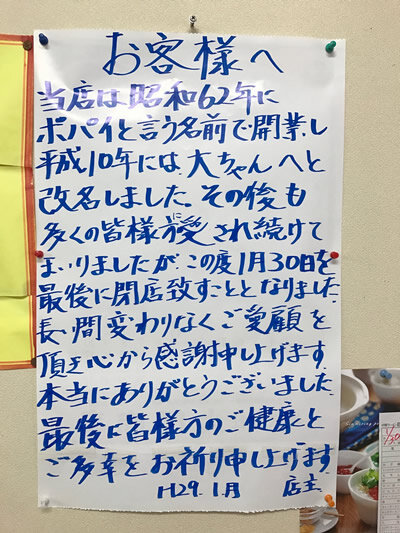 お客様へ
当店は昭和62年に
ポパイと言う名前で開業し
平成10年には大ちゃんへと
改名しました。その後も
多くの皆様方に愛され続けて
まいりましたが、この度1月30日を
最後に閉店致すこととなりました。
長い間変わりなくご愛顧を
頂き心から感謝申し上げます
本当にありがとうございました。
最後に皆様方のご健康と
ご多幸をお祈り申し上げます
H29.1月 店主